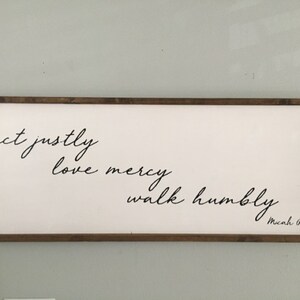 ct justly
love mercy
walk humbly
Micah